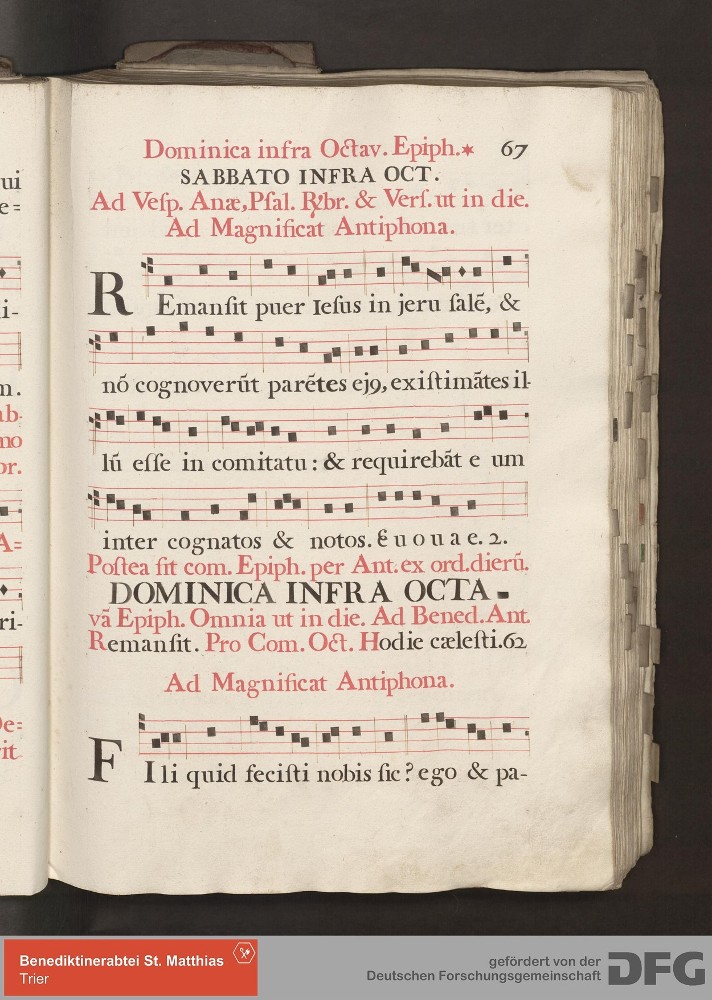 ui
e=
i-
m.
ab-
mo
or.
A=
ri-
De=
rit
Dominica infra Octav. Epiph.* 67
SABBATO INFRA OCT.
Ad Vesp. Anæ, Psal. R/br. & Vers. ut in die.
Ad Magnificat Antiphona.
REmansit puer Iesus in jeru salē, &
nō cognoverūt parētes ej9, existimātes il-
lū esse in comitatu : & requirebāt e um
inter cognatos & notos. E u o u a e. 2.
Postea fit com. Epiph. per Ant. ex ord. dierū.
DOMINICA INFRA OCTA-
vā Epiph. Omnia ut in die. Ad Bened. Ant.
Remansit. Pro Com. Oct. Hodie cælesti. 62
Ad Magnificat Antiphona.
FIli quid fecisti nobis sic ? ego & pa-
Benediktinerabtei St. Matthias
Trier
gefördert von der
Deutschen Forschungsgemeinschaft DFG